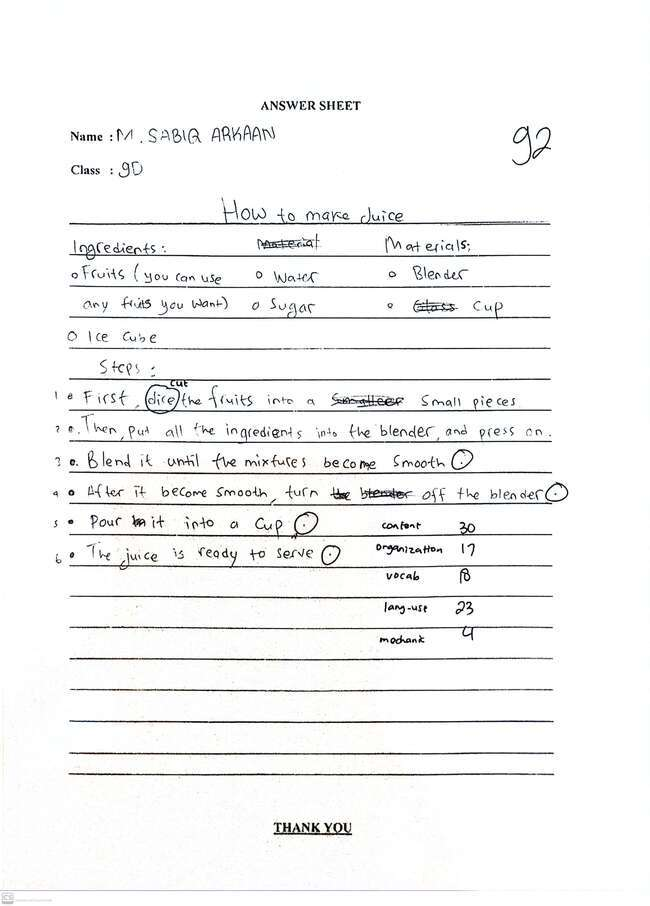 ANSWER SHEET
Name : M. SABIQ ARKAAN
92
Class : 9D
How to make Juice
Ingredients: Material Materials:
o Fruits (you can use o Water o Blender
any fruits you want) o Sugar o Glass Cup
o Ice Cube
Steps :
cut
1 • First, dice the fruits into a Smalleer Small pieces
2 o. Then, put all the ingredients into the blender, and press on.
3 o. Blend it until the mixtures become smooth .
4 o After it become smooth, turn the blender off the blender .
5 • Pour it into a Cup .
6 • The juice is ready to serve .
content 30
organization 17
vocab 18
lang-use 23
mechanik 4
THANK YOU
CS